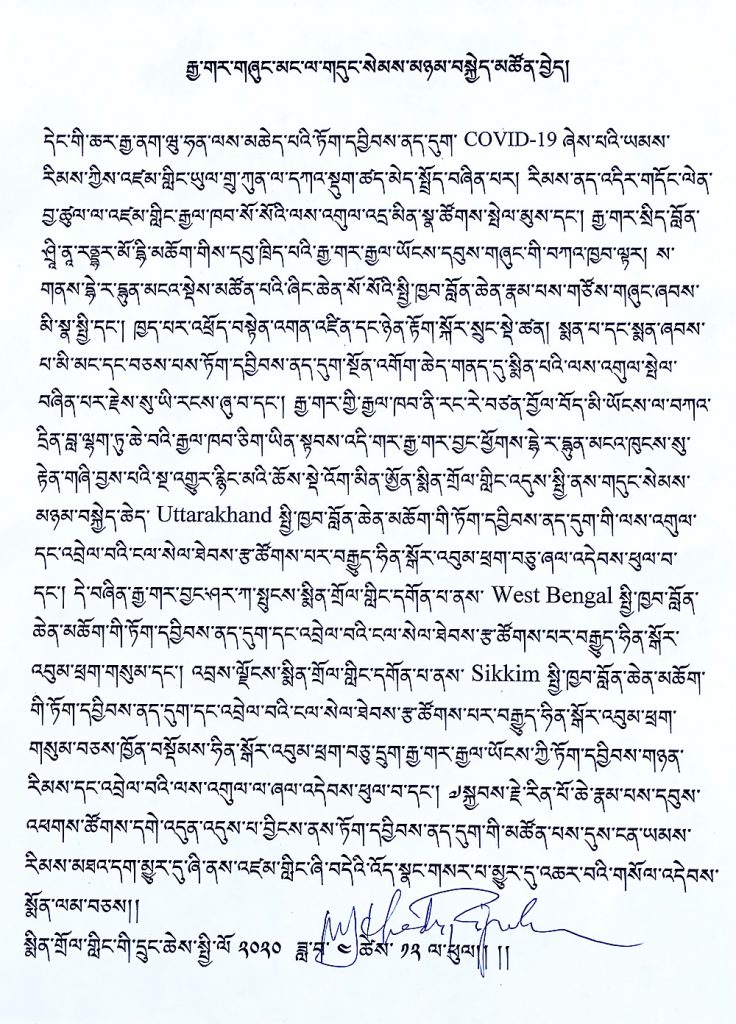 རྒྱ་གར་གཞུང་མང་ལ་གདུང་སེམས་མཉམ་བསྐྱེད་མཚོན་བྱེད།
དེང་གི་ཆར་རྒྱ་ནག་ཝུ་ཧན་ལས་མཆེད་པའི་ཏོག་དབྱིབས་ནད་དུག་ COVID-19 ཞེས་པའི་ཡམས་
རིམས་ཀྱིས་འཛམ་གླིང་ཡུལ་གྲུ་ཀུན་ལ་དཀའ་སྡུག་ཚད་མེད་སྤྲོད་བཞིན་པར། རིམས་ནད་འདིར་གདོང་ལེན་
བྱ་ཚུལ་ལ་འཛམ་གླིང་རྒྱལ་ཁབ་སོ་སོའི་ལས་འགུལ་འདྲ་མིན་སྣ་ཚོགས་སྤེལ་མུས་དང་། རྒྱ་གར་སྲིད་བློན་
ཤྲཱི་ནཱ་རནྡྷར་མོ་དྷི་མཆོག་གིས་དབུ་ཁྲིད་པའི་རྒྱ་གར་རྒྱལ་ཡོངས་དབུས་གཞུང་གི་བཀའ་ཁྱབ་ལྟར། ས་
གནས་དྷེ་ར་དྷུན་མངའ་སྡེས་མཚོན་པའི་ཞིང་ཆེན་སོ་སོའི་སྤྱི་ཁྱབ་བློན་ཆེན་རྣམ་པས་གཙོས་གཞུང་ཞབས་
མི་སྣ་སྤྱི་དང་། ཁྱད་པར་འཕྲོད་བསྟེན་འགན་འཛིན་དང་ཉེན་རྟོག་སྐོར་སྲུང་སྡེ་ཚན། སྨན་པ་དང་སྨན་ཞབས་
པ་མི་མང་དང་བཅས་པས་ཏོག་དབྱིབས་ནད་དུག་སྔོན་འགོག་ཆེད་གནད་དུ་སྨིན་པའི་ལས་འགུལ་སྤེལ་
བཞིན་པར་རྗེས་སུ་ཡི་རངས་ཞུ་བ་དང་། རྒྱ་གར་གྱི་རྒྱལ་ཁབ་ནི་རང་རེ་བཙན་བྱོལ་བོད་མི་ཡོངས་ལ་བཀའ་
དྲིན་བླ་ལྷག་ཏུ་ཆེ་བའི་རྒྱལ་ཁབ་ཅིག་ཡིན་སྟབས་འདི་གར་རྒྱ་གར་བྱང་ཕྱོགས་དྷེ་ར་དྷུན་མངའ་ཁུངས་སུ་
རྟེན་གཞི་བྱས་པའི་སྔ་འགྱུར་རྙིང་མའི་ཆོས་སྡེ་འོག་མིན་ཨོྱན་སྨིན་གྲོལ་གླིང་འདུས་སྤྱི་ནས་གདུང་སེམས་
མཉམ་བསྐྱེད་ཆེད་ Uttarakhand སྤྱི་ཁྱབ་བློན་ཆེན་མཆོག་གི་ཏོག་དབྱིབས་ནད་དུག་གི་ལས་འགུལ་
དང་འབྲེལ་བའི་ངལ་སེལ་ཐེབས་རྩ་ཚོགས་པར་བརྒྱུད་ཧིན་སྒོར་འབུམ་ཕྲག་བཅུ་ཞལ་འདེབས་ཕུལ་བ་
དང་། དེ་བཞིན་རྒྱ་གར་བྱང་ཤར་ཀ་སྦུངས་སྨིན་གྲོལ་གླིང་དགོན་པ་ནས་ West Bengal སྤྱི་ཁྱབ་བློན་
ཆེན་མཆོག་གི་ཏོག་དབྱིབས་ནད་དུག་དང་འབྲེལ་བའི་ངལ་སེལ་ཐེབས་རྩ་ཚོགས་པར་བརྒྱུད་ཧིན་སྒོར་
འབུམ་ཕྲག་གསུམ་དང་། འབྲས་ལྗོངས་སྨིན་གྲོལ་གླིང་དགོན་པ་ནས་ Sikkim སྤྱི་ཁྱབ་བློན་ཆེན་མཆོག་
གི་ཏོག་དབྱིབས་ནད་དུག་དང་འབྲེལ་བའི་ངལ་སེལ་ཐེབས་རྩ་ཚོགས་པར་བརྒྱུད་ཧིན་སྒོར་འབུམ་ཕྲག་
གསུམ་བཅས་ཁྱོན་བསྡོམས་ཧིན་སྒོར་འབུམ་ཕྲག་བཅུ་དྲུག་རྒྱ་གར་རྒྱལ་ཡོངས་ཀྱི་ཏོག་དབྱིབས་གཉན་
རིམས་དང་འབྲེལ་བའི་ལས་འགུལ་ལ་ཞལ་འདེབས་ཕུལ་བ་དང་། ༧སྐྱབས་རྗེ་རིན་པོ་ཆེ་རྣམ་པས་དབུས་
འཕགས་ཚོགས་དགེ་འདུན་འདུས་པ་བྱིངས་ནས་ཏོག་དབྱིབས་ནད་དུག་གི་མཚོན་པས་དུས་ངན་ཡམས་
རིམས་མཐའ་དག་མྱུར་དུ་ཞི་ནས་འཛམ་གླིང་ཞི་བདེའི་འོད་སྣང་གསར་པ་མྱུར་དུ་འཆར་བའི་གསོལ་འདེབས་
སྨོན་ལམ་བཅས།།
སྨིན་གྲོལ་གླིང་གི་དྲུང་ཆེས་སྤྱི་ལོ་ ༢༠༢༠ ཟླ་བ་ ༤ ཚེས་ ༡༢ ལ་ཕུལ།། །།